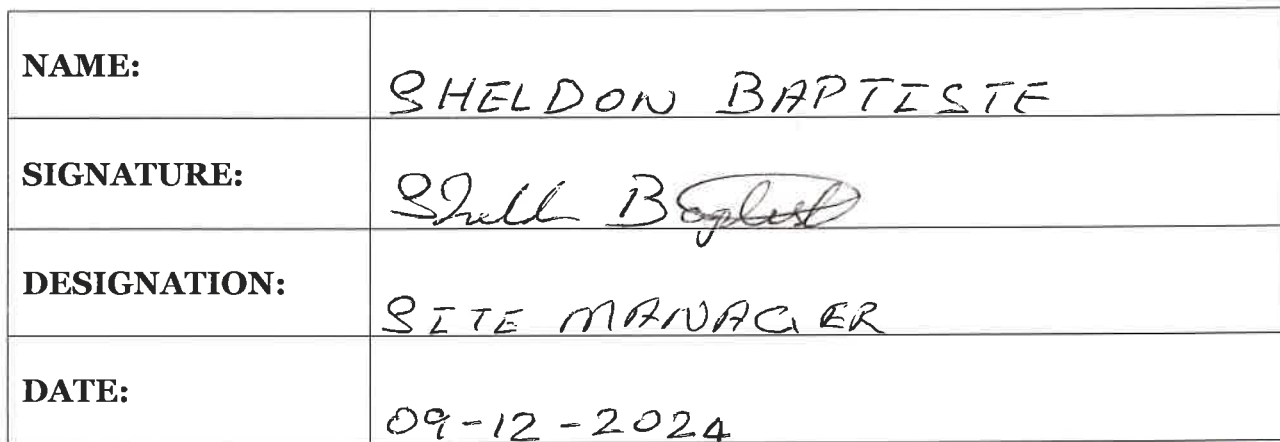 NAME: SHELDON BAPTISTE
SIGNATURE:
DESIGNATION: SITE MANAGER
DATE: 09-12-2024